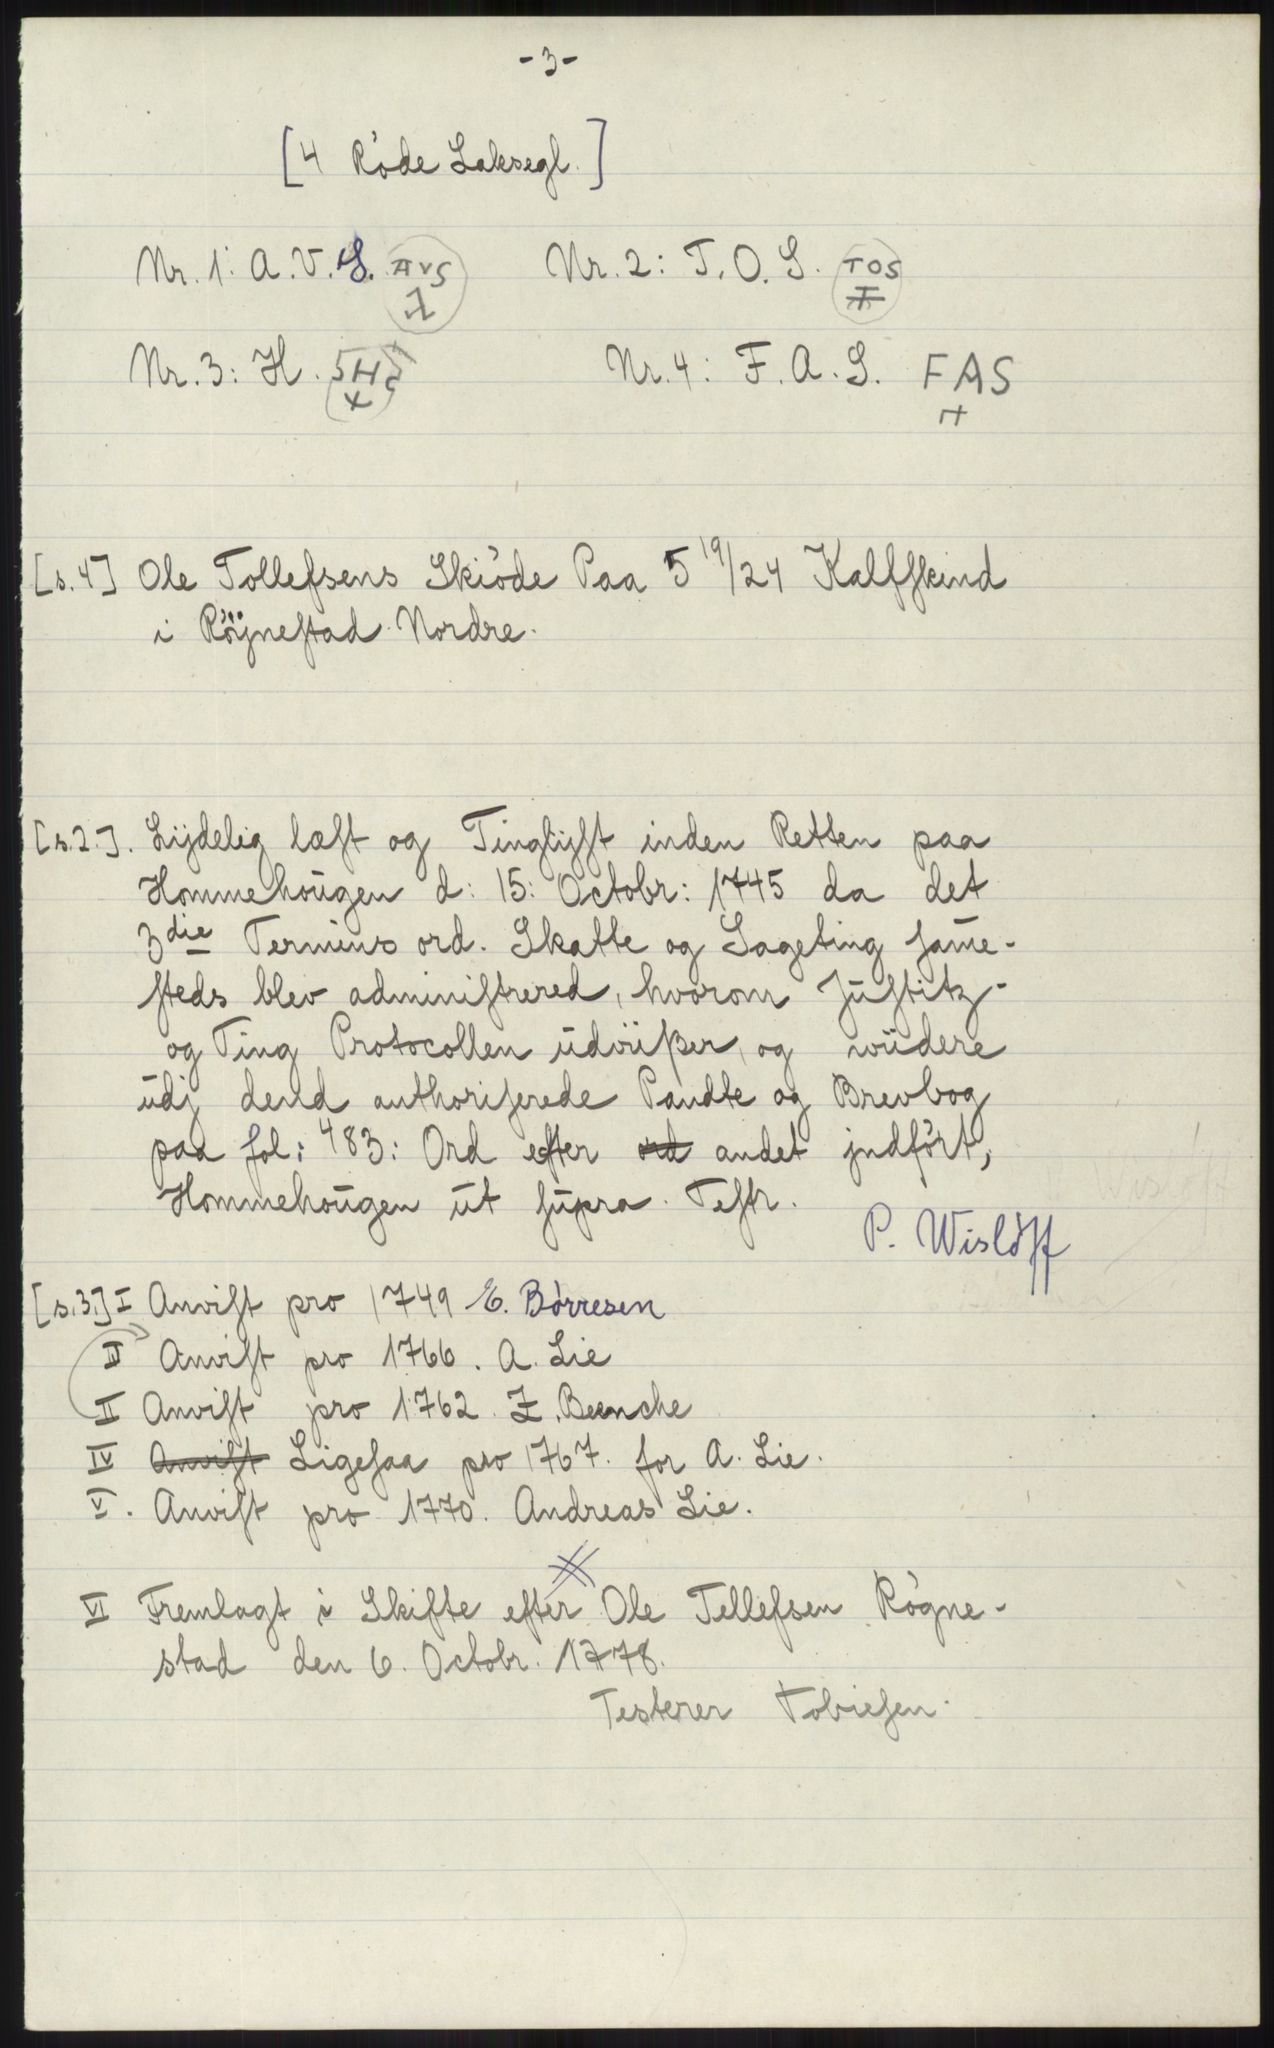 - 3 -
[4 Röde Laksegl.]
Nr. 1: A. V. S. AVS Nr. 2: T. O. S. TOS
Nr. 3: H. SH Nr. 4: F. A. S. FAS
[s. 4] Ole Tollefsens Skiöde Paa 5 19/24 Kalfskind
i Röÿnestad Nordre.
[s. 2.]. Lÿdelig læst og Tinglÿst inden Retten paa
Hommehoŭgen d: 15: Octobr: 1745 da det
3die Termins ord. Skatte og Sageting same-
steds blev administrered, hvorom Jŭstitz-
og Ting Protocollen ŭdviißer, og viidere
ŭdj dend authoriserede Pandte og Brevbog
paa fol: 483: Ord efter ord andet jndfört,
Hommehoŭgen ŭt sŭpra. Testr.
P. Wislöff
[s. 3.] I Anvist pro 1749 E. Börresen
III Anvist pro 1766. A. Lie
II Anvist pro 1762. Z. Bunche
IV Anvist Ligesaa pro 1767. for A. Lie.
V. Anvist pro 1770. Andreas Lie.
VI Fremlagt i Skifte efter Ole Tellefsen Rögne-
stad den 6. Octobr. 1778.
Testerer Tobiesen.